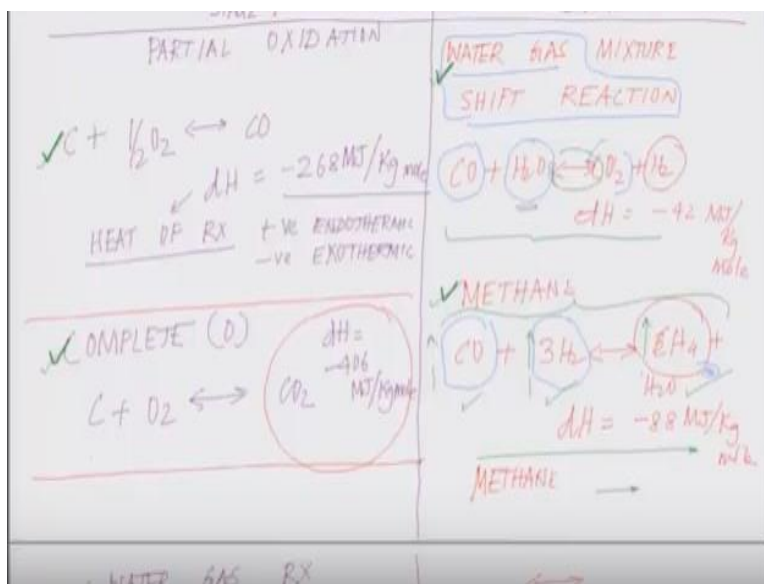 PARTIAL OXIDATION
C + 1/2 O2 ↔ CO
dH = -268 MJ/Kg mole
HEAT OF RX
+ve ENDOTHERMIC
-ve EXOTHERMIC
COMPLETE (O)
C + O2 ↔ CO2
dH =
-406
MJ/Kgmole
WATER GAS MIXTURE
SHIFT REACTION
CO + H2O ↔ CO2 + H2
dH = -42 MJ/
Kg
mole
METHANE
CO + 3H2 ↔ CH4 +
H2O
dH = -88 MJ/Kg
mole
METHANE →
WATER GAS RX